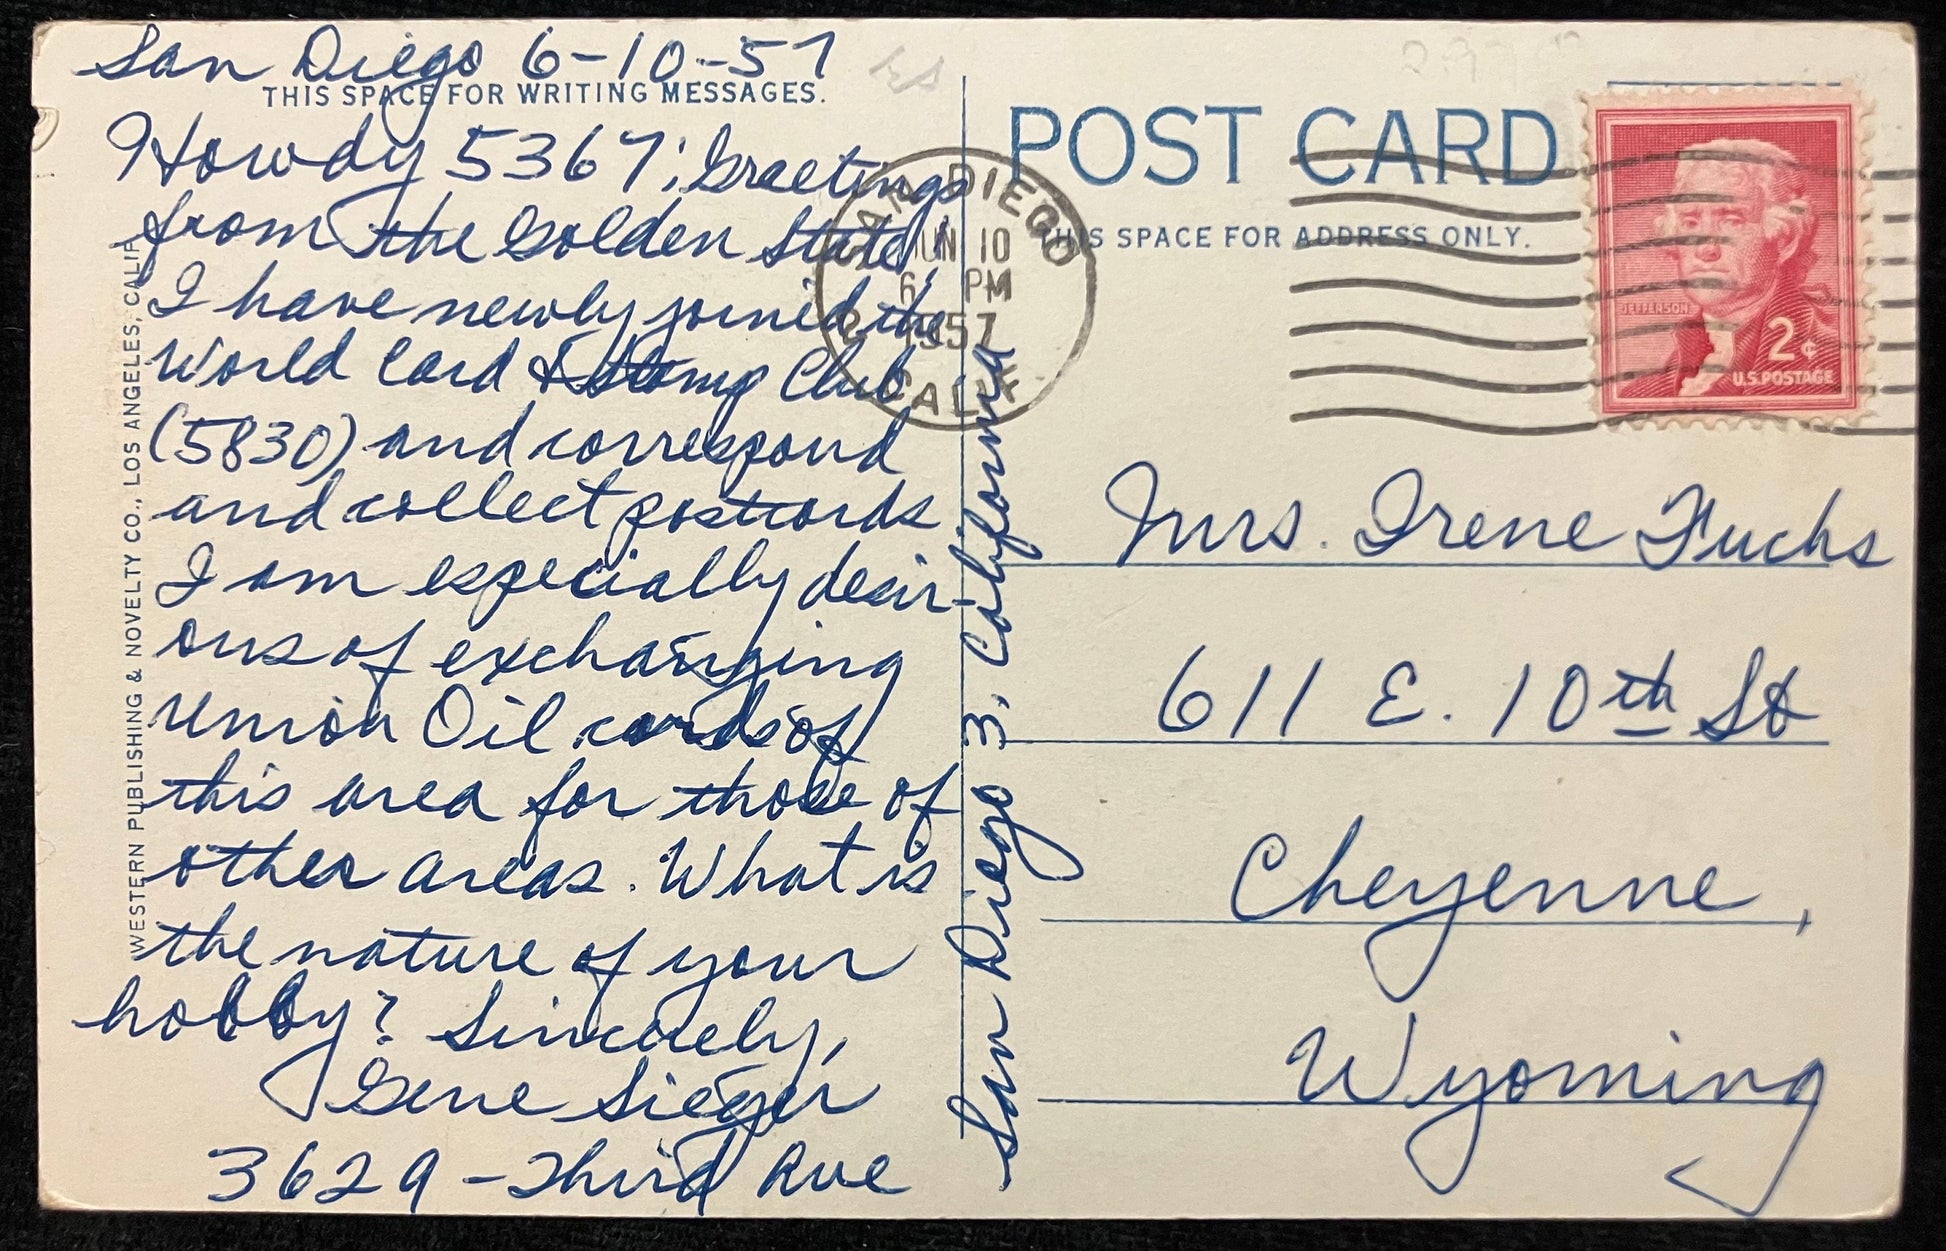 San Diego 6-10-57
THIS SPACE FOR WRITING MESSAGES.
Howdy 5367; Greetings
from the Golden State!
I have newly joined the
World Card & Stamp Club
(5830) and correspond
and collect postcards
I am especially desir-
ous of exchanging
Union Oil cards of
this area for those of
other areas. What is
the nature of your
hobby? Sincerely,
Gene Sieger
3629 - Third Ave
San Diego 3, California
WESTERN PUBLISHING & NOVELTY CO., LOS ANGELES, CALIF.
POST CARD
THIS SPACE FOR ADDRESS ONLY.
SAN DIEGO
JUN 10
6 PM
1957
CALIF
JEFFERSON
2¢
U.S. POSTAGE
Mrs. Irene Fuchs
611 E. 10th St
Cheyenne,
Wyoming